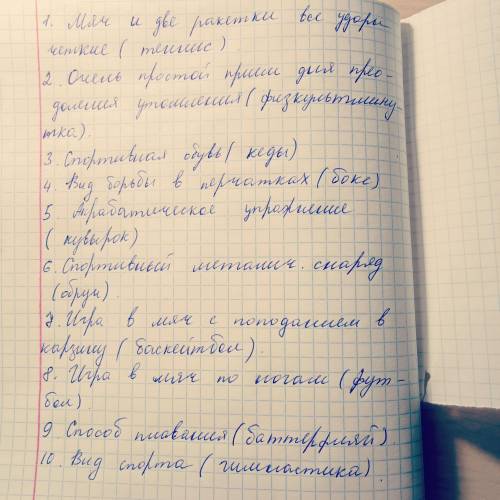 1. Мяч и две ракетки все удары
четкие ( теннис ).
2. Очень простой прием для прео-
доления утомления ( физкультмину-
тка).
3. Спортивная обувь ( кеды)
4. Вид борьбы в перчатках ( бокс)
5. Акрабатическое упражнение
( кувырок)
6. Спортивный металич. снаряд
(обруч).
7. Игра в мяч с поподанием в
карзину ( баскейтбол).
8. Игра в мяч по ногам ( фут-
бол).
9. Способ плавания ( баттерфляй).
10. Вид спорта ( гимнастика)